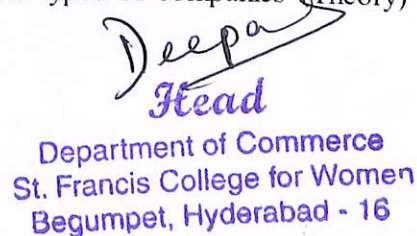 types of companies (Theory)
Deepa
Head
Department of Commerce
St. Francis College for Women
Begumpet, Hyderabad - 16